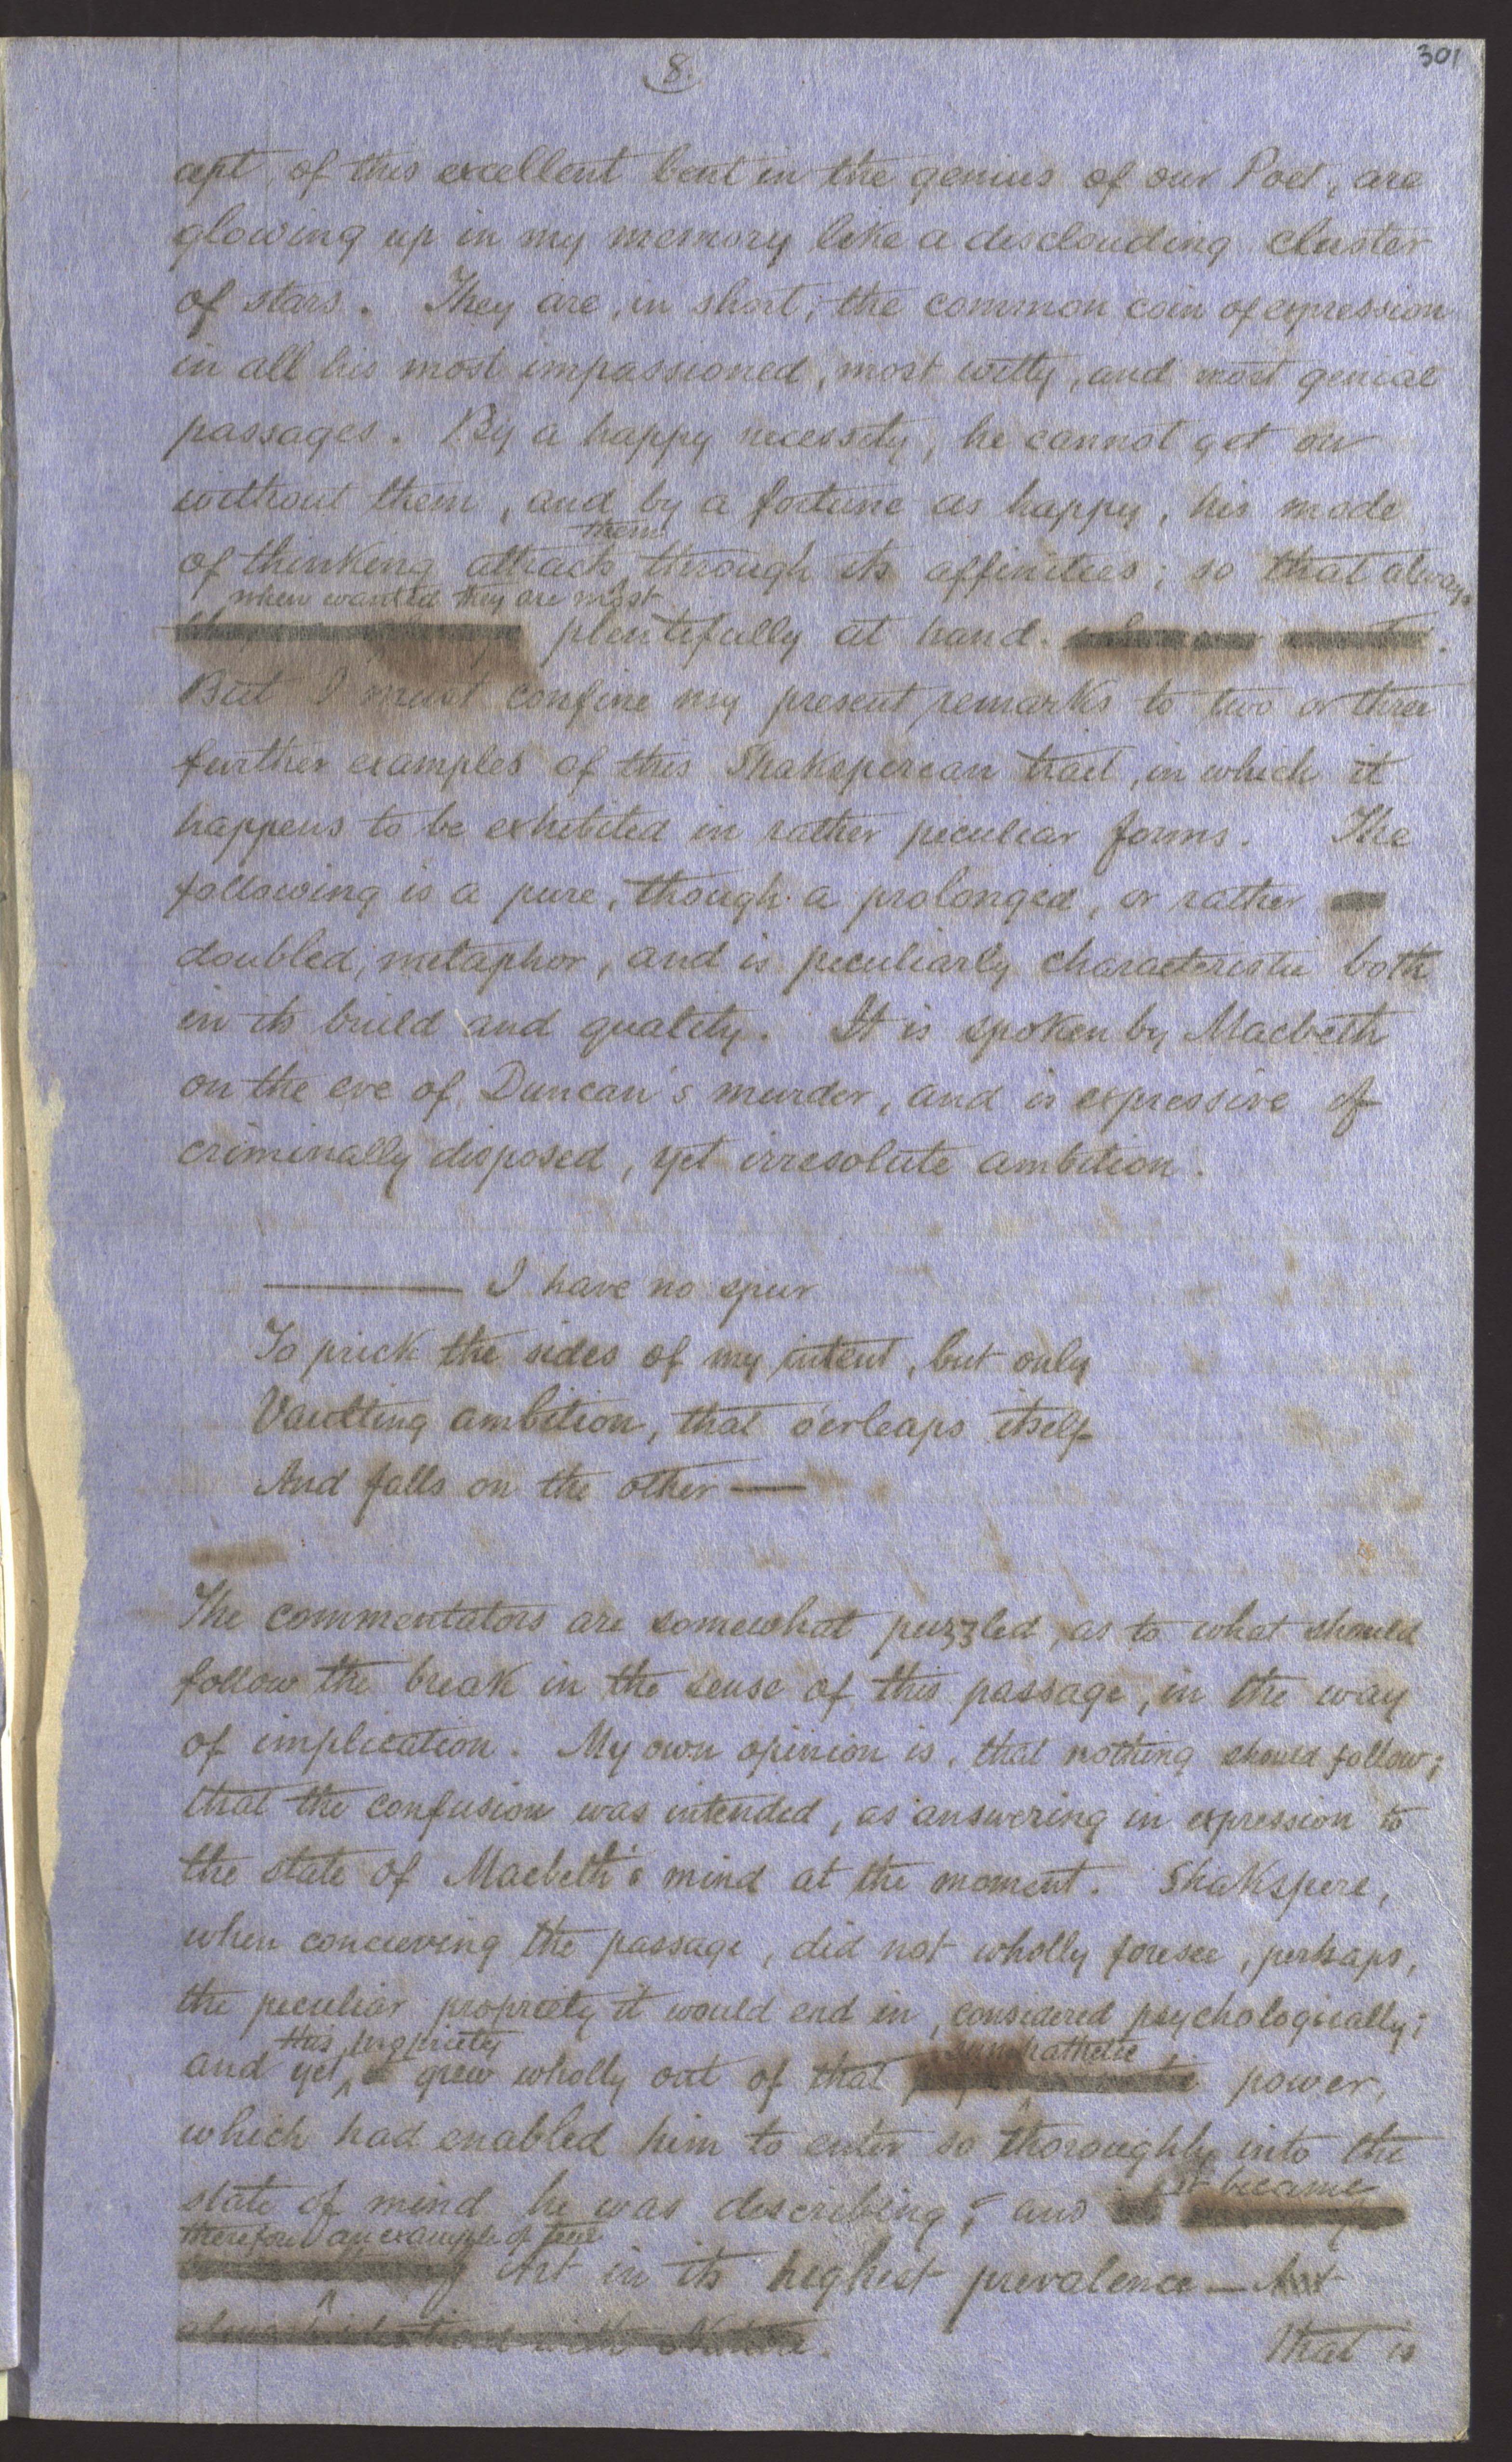 8.
301
cept, of this excellent bent in the genius of our Poet, are
glowing up in my memory like a disclouding cluster
of stars. They are, in short, the common coin of expression
in all his most impassioned, most witty, and most genial
passages. By a happy necessity, he cannot get on
without them, and by a fortune as happy, his mode
them
of thinking attracts through its affinities; so that always
when wanted they are most
plentifully at hand.
But I must confine my present remarks to two or three
further examples of this Shaksperean trait, in which it
happens to be exhibited in rather peculiar forms. The
following is a pure, though a prolonged, or rather
doubled, metaphor, and is peculiarly characteristic both
in its build and quality. It is spoken by Macbeth
on the eve of Duncan's murder, and is expressive of
criminally disposed, yet irresolute ambition.
——— I have no spur
To prick the sides of my intent, but only
Vaulting ambition, that o'erleaps itself
And falls on the other —
The commentators are somewhat puzzled, as to what should
follow the break in the sense of this passage, in the way
of implication. My own opinion is, that nothing should follow;
that the confusion was intended, as answering in expression to
the state of Macbeth's mind at the moment. Shakspere,
when concieving the passage, did not wholly foresee, perhaps,
the peculiar propriety it would end in, considered psychologically;
this propriety sympathetic
and yet grew wholly out of that power,
which had enabled him to enter so thoroughly into the
it became
state of mind he was describing; and
therefore an example of true
Art in its highest prevalence — Art
almost identical with Nature.
that is